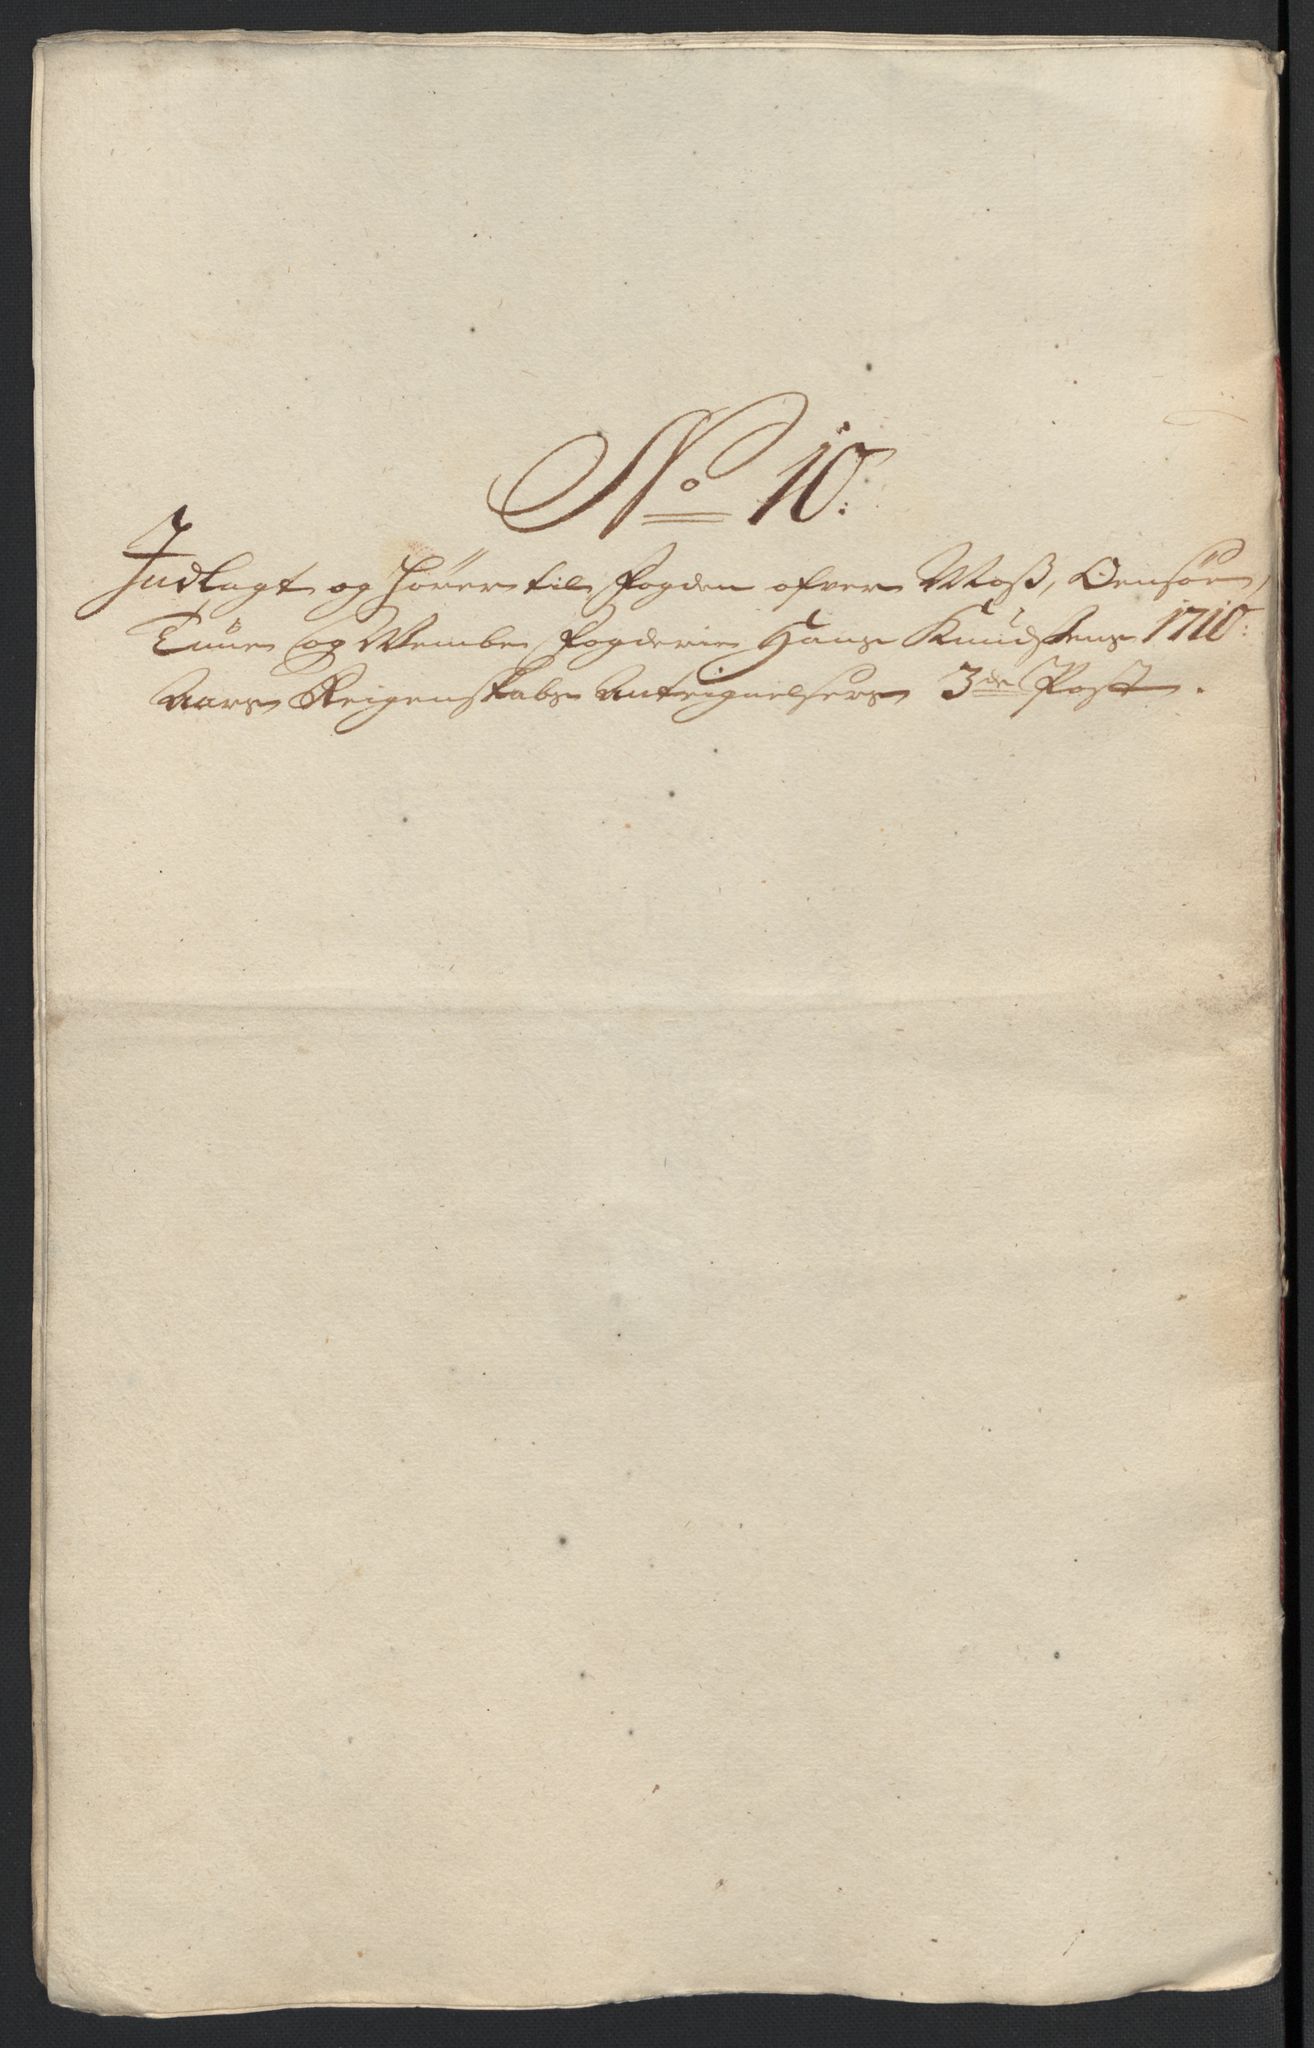 No 10.
Indlagt og hörer til Fogden ofver Moß, Onsöe,
Tune og Vemble Fogderie Hans Knudsens 1710:
Aars Reigenskabs Antegnelsers 3de Post.